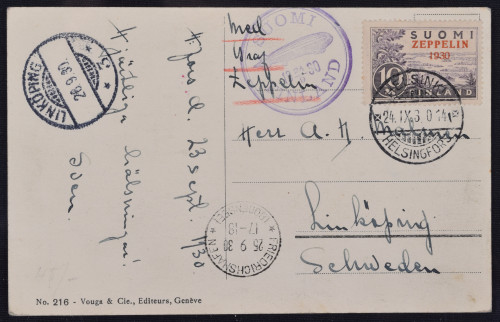 LINKÖPING
26.9.30
* 3 *
Hjärtliga hälsningar.
Sven.
H:fors d. 23 sept. 1930.
Med
Graf
Zeppelin
SUOMI
FINLAND
SUOMI
ZEPPELIN
1930
10 M
FINLAND
HELSINKI
24.IX.30.14
HELSINGFORS
Herr A. H.
Linköping
Schweden
FRIEDRICHSHAFEN
25.9.30
17-18
(BODENSEE)
No. 216 - Vouga & Cie., Editeurs, Genève